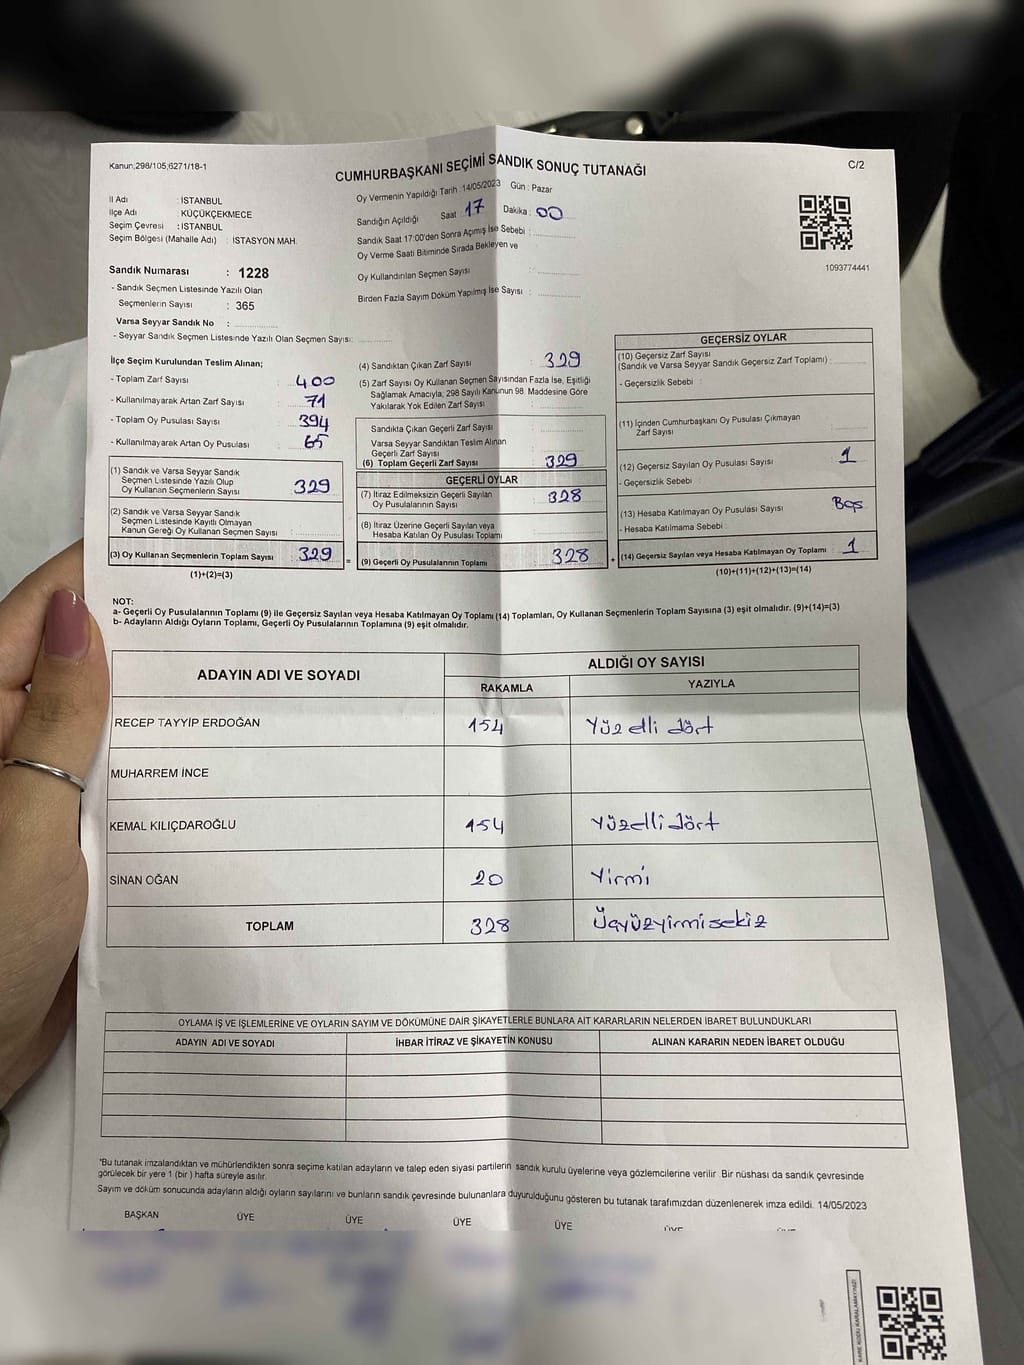 Kanun:298/105,6271/18-1
CUMHURBAŞKANI SEÇİMİ SANDIK SONUÇ TUTANAĞI
C/2
İl Adı : İSTANBUL
İlçe Adı : KÜÇÜKÇEKMECE
Seçim Çevresi : İSTANBUL
Seçim Bölgesi (Mahalle Adı) : İSTASYON MAH.
Oy Vermenin Yapıldığı Tarih :14/05/2023 Gün : Pazar
Sandığın Açıldığı Saat : 17 Dakika : 00
Sandık Saat 17:00'den Sonra Açılmış İse Sebebi :
Oy Verme Saati Bitiminde Sırada Bekleyen ve
Oy Kullandırılan Seçmen Sayısı :
Birden Fazla Sayım Döküm Yapılmış İse Sayısı :
1093774441
Sandık Numarası : 1228
- Sandık Seçmen Listesinde Yazılı Olan
Seçmenlerin Sayısı : 365
Varsa Seyyar Sandık No :
- Seyyar Sandık Seçmen Listesinde Yazılı Olan Seçmen Sayısı:
İlçe Seçim Kurulundan Teslim Alınan;
- Toplam Zarf Sayısı : 400
- Kullanılmayarak Artan Zarf Sayısı : 71
- Toplam Oy Pusulası Sayısı : 394
- Kullanılmayarak Artan Oy Pusulası : 65
(1) Sandık ve Varsa Seyyar Sandık
Seçmen Listesinde Yazılı Olup
Oy Kullanan Seçmenlerin Sayısı : 329
(2) Sandık ve Varsa Seyyar Sandık
Seçmen Listesinde Kayıtlı Olmayan
Kanun Gereği Oy Kullanan Seçmen Sayısı :
(3) Oy Kullanan Seçmenlerin Toplam Sayısı : 329
(1)+(2)=(3)
(4) Sandıktan Çıkan Zarf Sayısı : 329
(5) Zarf Sayısı Oy Kullanan Seçmen Sayısından Fazla İse, Eşitliği
Sağlamak Amacıyla, 298 Sayılı Kanunun 98. Maddesine Göre
Yakılarak Yok Edilen Zarf Sayısı :
Sandıkta Çıkan Geçerli Zarf Sayısı :
Varsa Seyyar Sandıktan Teslim Alınan
Geçerli Zarf Sayısı :
(6) Toplam Geçerli Zarf Sayısı : 329
GEÇERLİ OYLAR
(7) İtiraz Edilmeksizin Geçerli Sayılan
Oy Pusulalarının Sayısı : 328
(8) İtiraz Üzerine Geçerli Sayılan veya
Hesaba Katılan Oy Pusulası Toplamı :
= (9) Geçerli Oy Pusulalarının Toplamı : 328 +
GEÇERSİZ OYLAR
(10) Geçersiz Zarf Sayısı
(Sandık ve Varsa Seyyar Sandık Geçersiz Zarf Toplamı) :
- Geçersizlik Sebebi :
(11) İçinden Cumhurbaşkanı Oy Pusulası Çıkmayan
Zarf Sayısı :
(12) Geçersiz Sayılan Oy Pusulası Sayısı : 1
- Geçersizlik Sebebi :
(13) Hesaba Katılmayan Oy Pusulası Sayısı : Boş
- Hesaba Katılmama Sebebi :
(14) Geçersiz Sayılan veya Hesaba Katılmayan Oy Toplamı : 1
(10)+(11)+(12)+(13)=(14)
NOT:
a- Geçerli Oy Pusulalarının Toplamı (9) ile Geçersiz Sayılan veya Hesaba Katılmayan Oy Toplamı (14) Toplamları, Oy Kullanan Seçmenlerin Toplam Sayısına (3) eşit olmalıdır. (9)+(14)=(3)
b- Adayların Aldığı Oyların Toplamı, Geçerli Oy Pusulalarının Toplamına (9) eşit olmalıdır.
ADAYIN ADI VE SOYADI
ALDIĞI OY SAYISI
RAKAMLA YAZIYLA
RECEP TAYYİP ERDOĞAN 154 Yüz elli dört
MUHARREM İNCE
KEMAL KILIÇDAROĞLU 154 Yüzellidört
SİNAN OĞAN 20 Yirmi
TOPLAM 328 Üçyüzyirmisekiz
OYLAMA İŞ VE İŞLEMLERİNE VE OYLARIN SAYIM VE DÖKÜMÜNE DAİR ŞİKAYETLERLE BUNLARA AİT KARARLARIN NELERDEN İBARET BULUNDUKLARI
ADAYIN ADI VE SOYADI İHBAR İTİRAZ VE ŞİKAYETİN KONUSU ALINAN KARARIN NEDEN İBARET OLDUĞU
*Bu tutanak imzalandıktan ve mühürlendikten sonra seçime katılan adayların ve talep eden siyasi partilerin sandık kurulu üyelerine veya gözlemcilerine verilir. Bir nüshası da sandık çevresinde
görülecek bir yere 1 (bir ) hafta süreyle asılır.
Sayım ve döküm sonucunda adayların aldığı oyların sayılarını ve bunların sandık çevresinde bulunanlara duyurulduğunu gösteren bu tutanak tarafımızdan düzenlenerek imza edildi. 14/05/2023
BAŞKAN ÜYE ÜYE ÜYE ÜYE ÜYE
KARE KODU KARALAMAYINIZ!